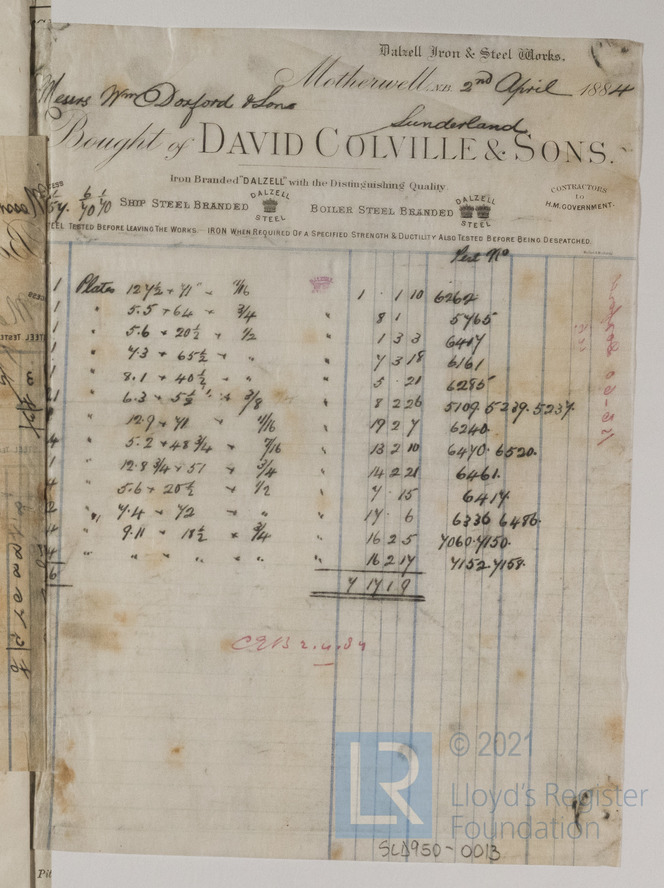 Dalzell Iron & Steel Works.
Motherwell, N.B. 2nd April 1884
Messrs Wm Doxford & Sons
Sunderland.
Bought of DAVID COLVILLE & SONS.
Iron Branded "DALZELL" with the Distinguishing Quality.
SHIP STEEL BRANDED DALZELL STEEL BOILER STEEL BRANDED DALZELL STEEL
CONTRACTORS to H.M. GOVERNMENT.
STEEL TESTED BEFORE LEAVING THE WORKS.— IRON WHEN REQUIRED OF A SPECIFIED STRENGTH & DUCTILITY ALSO TESTED BEFORE BEING DESPATCHED.
Test No
1 Plates 12.7½ × 71 " 7/16 1 . 1 10 6262
1 " 5.5 × 64 × 3/4 " 8 1 5765
1 " 5.6 × 20½ × 1/2 " 1 3 3 6417
1 " 7.3 × 65½ × " " 7 3 18 6161
1 " 8.1 × 40½ × " " 5 . 21 6285
21 " 6.3 × 5½ " × 3/8 " 8 2 26 5109. 5239. 5237.
" 12.9 × 71 × 7/16 " 19 2 7 6240
4 " 5.2 × 48 3/4 × 7/16 " 13 2 10 6470. 6520.
1 " 12.8 3/4 × 51 × 3/4 " 14 2 21 6461.
4 " 5.6 × 20½ × 1/2 " 7 . 15 6417
2 " 7.4 × 72 × " " 17 . 6 6336 6486.
4 " 9.11 × 18½ × 3/4 " 16 2 5 7060. 7150.
4 " " " " " " 16 2 17 7152. 7158.
7 17 1 9
2.4.84
© 2021
LR
Lloyd's Register
Foundation
SLD950-0013